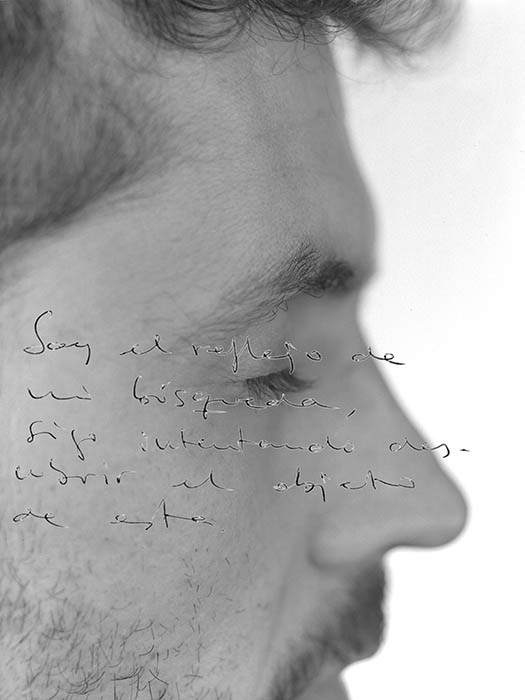 Soy el reflejo de
mi búsqueda,
sigo intentando des-
cubrir el objeto
de esta.